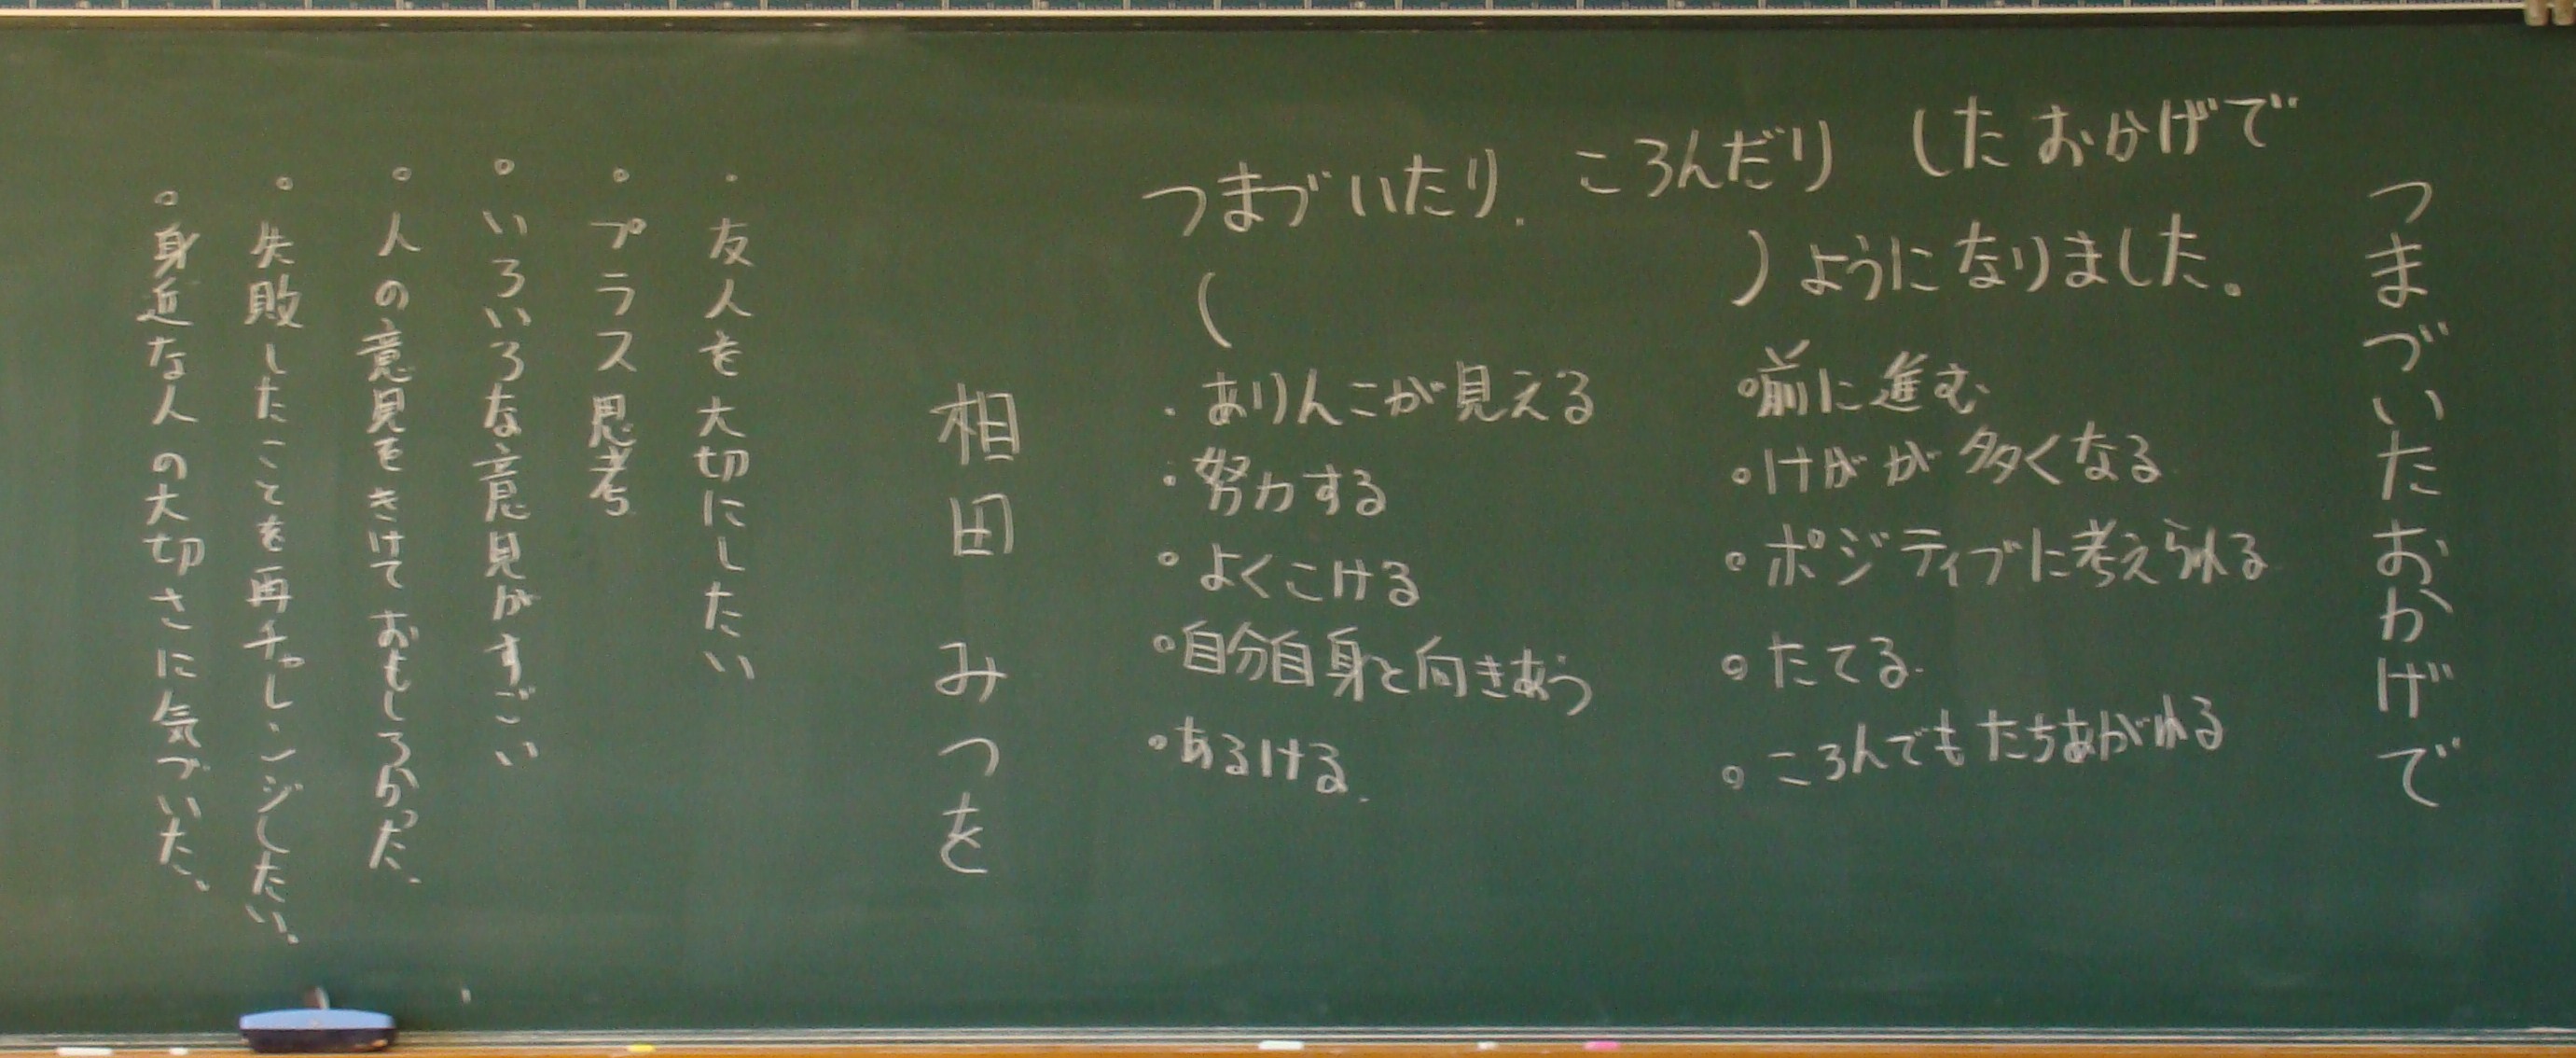 つまづいたおかげで
つまづいたり、ころんだり したおかげで
(　　　　)ようになりました。
・ありんこが見える
・努力する
・よくこける
・自分自身と向きあう
・あるける
・前に進む
・けがが多くなる
・ポジティブに考えられる
・たてる
・ころんでもたちあがれる
相田みつを
・友人を大切にしたい
・プラス思考
・いろいろな意見がすごい
・人の意見をきけておもしろかった。
・失敗したことを再チャレンジしたい。
・身近な人の大切さに気づいた。